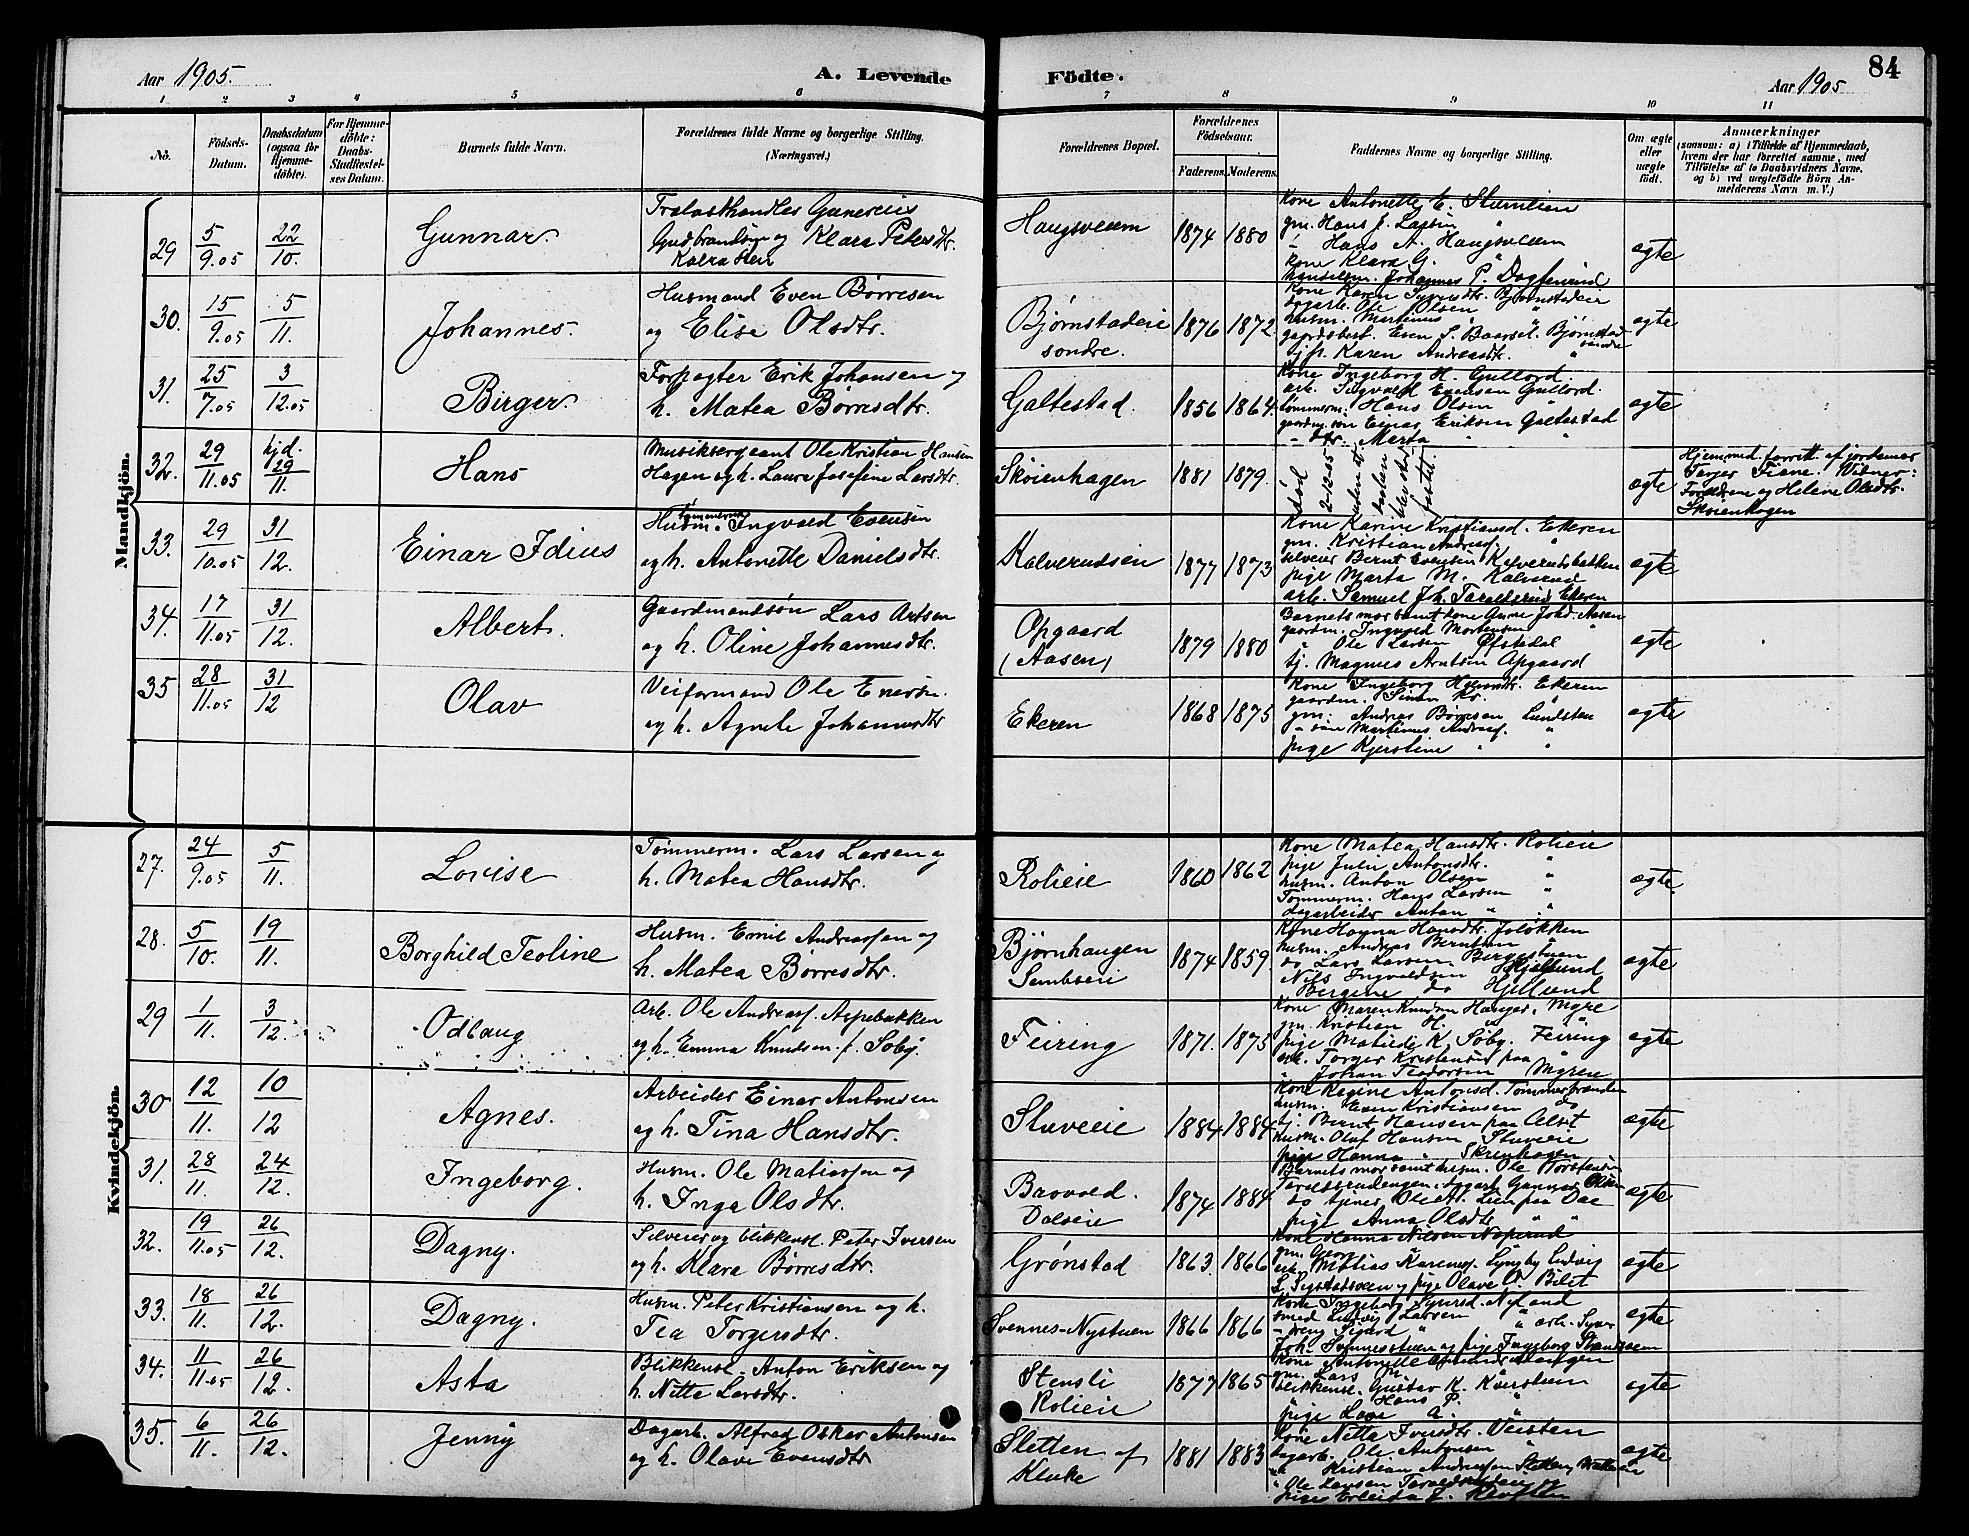 Aar 1905.
A. Levende
Födte.
Aar 1905
84
1 2 3 4 5 6 7 8 9 10 11
No.
Födsels-Datum.
Daabsdatum (ogsaa for Hjemme-döbte).
For Hjemme-döbte: Daabs-Stadfæstel-ses Datum.
Barnets fulde Navn.
Forældrenes fulde Navne og borgerlige Stilling. (Næringsvei.)
Forældrenes Bopæl.
Forældrenes Födselsaar.
Faderens. Moderens.
Faddernes Navne og borgerlige Stilling.
Om ægte eller uægte födt.
Anmærkninger
(saasom: a) i Tilfælde af Hjemmedaab, hvem der har forrettet samme, med Tilföielse af to Daabsvidners Navne. og b) ved uægtefödte Börn An-melderens Navn m. V.)
Mandkjön.
29 5/9.05 22/10. Gunnar.
Trælasthandler
Gudbrandsen og Klara Petersdtr.
Haugsveen 1874 1880
Kone Antonette E.
gm. Hans J.
Hans A. Haugsveen
Kone Klara G.
Johannes P.
ægte
30. 15/9.05 5/11. Johannes.
Husmand Even Børresen
og Elise Olsdtr.
Bjørnstadeie
søndre.
1876 1872.
Kone Karen
dagarb. Ole Olsen
husm. Martinus
gaardsbest. Even L.
Karen Andreasdtr.
ægte
31. 25/7.05 3/12.05 Birger.
Forpagter Erik Johansen og
h. Matea Børresdtr.
Galtestad. 1856 1864.
Kone Ingeborg H. Gullord.
arb. Ingvald Evensen Gullord.
tømmerm. Hans Olsen
gaardm. søn Einar Eriksen Galtestad
" dtr. Marta " "
ægte
32. 29/11.05 hjd. 29/11. Hans
Musiksergeant Ole Kristian Hansen
Hagen og h. Laura Josefine Larsdtr.
Skøienhagen 1881 1879.
død 2-12-05 uden at daaben blev stadfæstet.
ægte
Hjemmed. forrett. af jordemor
Vidner:
Forældrene og Helene Olsdtr.
Skøienhagen
33. 29/10.05 31/12. Einar Idius
Husm. tømmerm. Ingvald Evensen
og h. Antonette Danielsdtr.
Kalverudseie 1877 1873
Kone Karine Kristiansd. Ekeren
gm. Kristian Andreas.
Bernt Evensen Kalverudsbakken
pige Marta M. Kalverud
arb. Samuel Jh. Ekeren
ægte
34. 17/11.05 31/12. Albert.
Gaardmandsøn Lars Antsen
og h. Oline Johannesdtr.
Opgaard
(Aasen) 1879 1880
Barnets mor samt kone Anne Johd. Aasen
gaardm. Ingvald Mortensen
" Ole Larsen Øfstedal
tj. Magnus Arntsen Opgaard
ægte
35 28/11.05 31/12 Olav
Veiformand Ole Enersen.
og h. Agnete Johannesdtr
Ekeren 1868 1875
Kone Ingeborg Ekeren
gaardm. Simen Kr.
gm. Andreas Børresen Lundsten
" søn Martinus Andreas.
pige Kjerstine " "
ægte
Kvindekjön.
27. 24/9.05 5/11. Lovise
Tømmerm. Lars Larsen og
h. Matea Hansdtr.
Rolieie 1860 1862
Kone Matea Hansdtr. Rolieie
pige Julie Antonsdtr. "
husm. Anton Olsen "
Tømmerm. Hans Larsen "
dagarbeider Anton " "
ægte
28. 5/10. 19/11. Borghild Teoline
Husm. Emil Andreassen og
h. Matea Børresdtr.
Bjørnhaugen
Sembseie 1874 1859.
Kone Hanna Hansdtr. Joløkken
husm. Andreas Berntsen "
do Lars Larsen
Nils Ingvaldsen Hjellund
Bergine do Hjellund
ægte
29 1/11. 3/12. Odlaug
Arb. Ole Andreass. Aspebakken
og h. Emma Knudsen f. Søby.
Feiring 1871. 1875
Kone Maren Knudsen Hanger, Myre
gm. Kristian H. "
pige Matilde K. Søby. Feiring
arb. Torger Kristensen paa "
" Johan Teodorsen Myren
ægte
30 12/11. 10/12 Agnes.
Arbeider Einar Antonsen
og h. Tina Hansdtr.
Stuveie 1884 1884
Kone Regine Antonsd. Tømmerbraaten
husm. Even Kristiansen do
tj. Bernt Hansen paa
husm. Olaf Hansen Stuveie
pige Hanna " Skrenhagen
ægte
31 28/11. 24/12. Ingeborg.
Husm. Ole Matiassen og
h. Inga Olsdtr.
Braavold.
Dalseie 1874 1884
Barnets mor samt husm. Ole Torstensen
dagarb. Gunnar Olsen
do tjener Ole A. Lien paa Dae
pige Anna Olsdtr " "
ægte
32. 19/11.05 26/12. Dagny.
Selveier og blikkensl. Peter Iversen
og h. Klara Børresdtr.
Grønstad 1863. 1866
Kone Hanna Nilsen Næperud
gm. Georg
arb. Matias Lyngby Ludvig
L. og pige Olave O. Bilet
ægte
33. 18/11. 26/12. Dagny.
Husm. Peter Kristiansen og h.
Tea Torgersdtr.
Svennes-Nystuen 1866 1866
Kone Ingeborg Syversd. Nyland
smed Ludvig Larsen " arb. Syver
" dreng Sigurd "
Joh. Svennesstuen og pige Ingeborg
ægte
34. 11/11.05 26/12. Asta
Blikkensl. Anton Eriksen og
h. Nitta Larsdtr.
Stensli
Rolieie 1877 1865
Kone Antonette
gm. Lars M.
blikkensl. Gustav K.
Hans P.
pige A.
ægte
35. 6/11. 26/12. Jenny
Dagarb. Alfred Oskar Antonsen
og h. Olave Evensdtr
Sletten af
Kluke 1881 1883
Kone Nitta Iversdtr. Veisten
dagarb. Ole Antonsen "
" Kristian Andreassen Sletten,
" Ole Hansen
pige
ægte